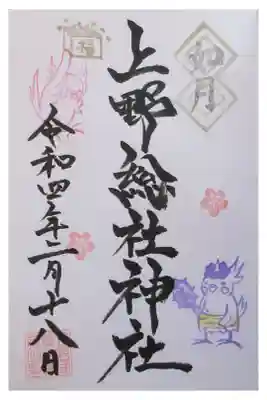 如月
上野總社神社
令和四年二月十八日
福